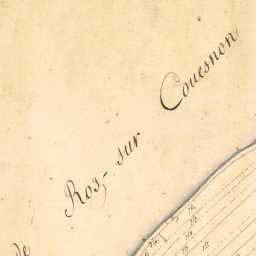 de
Ros-sur Couesnon